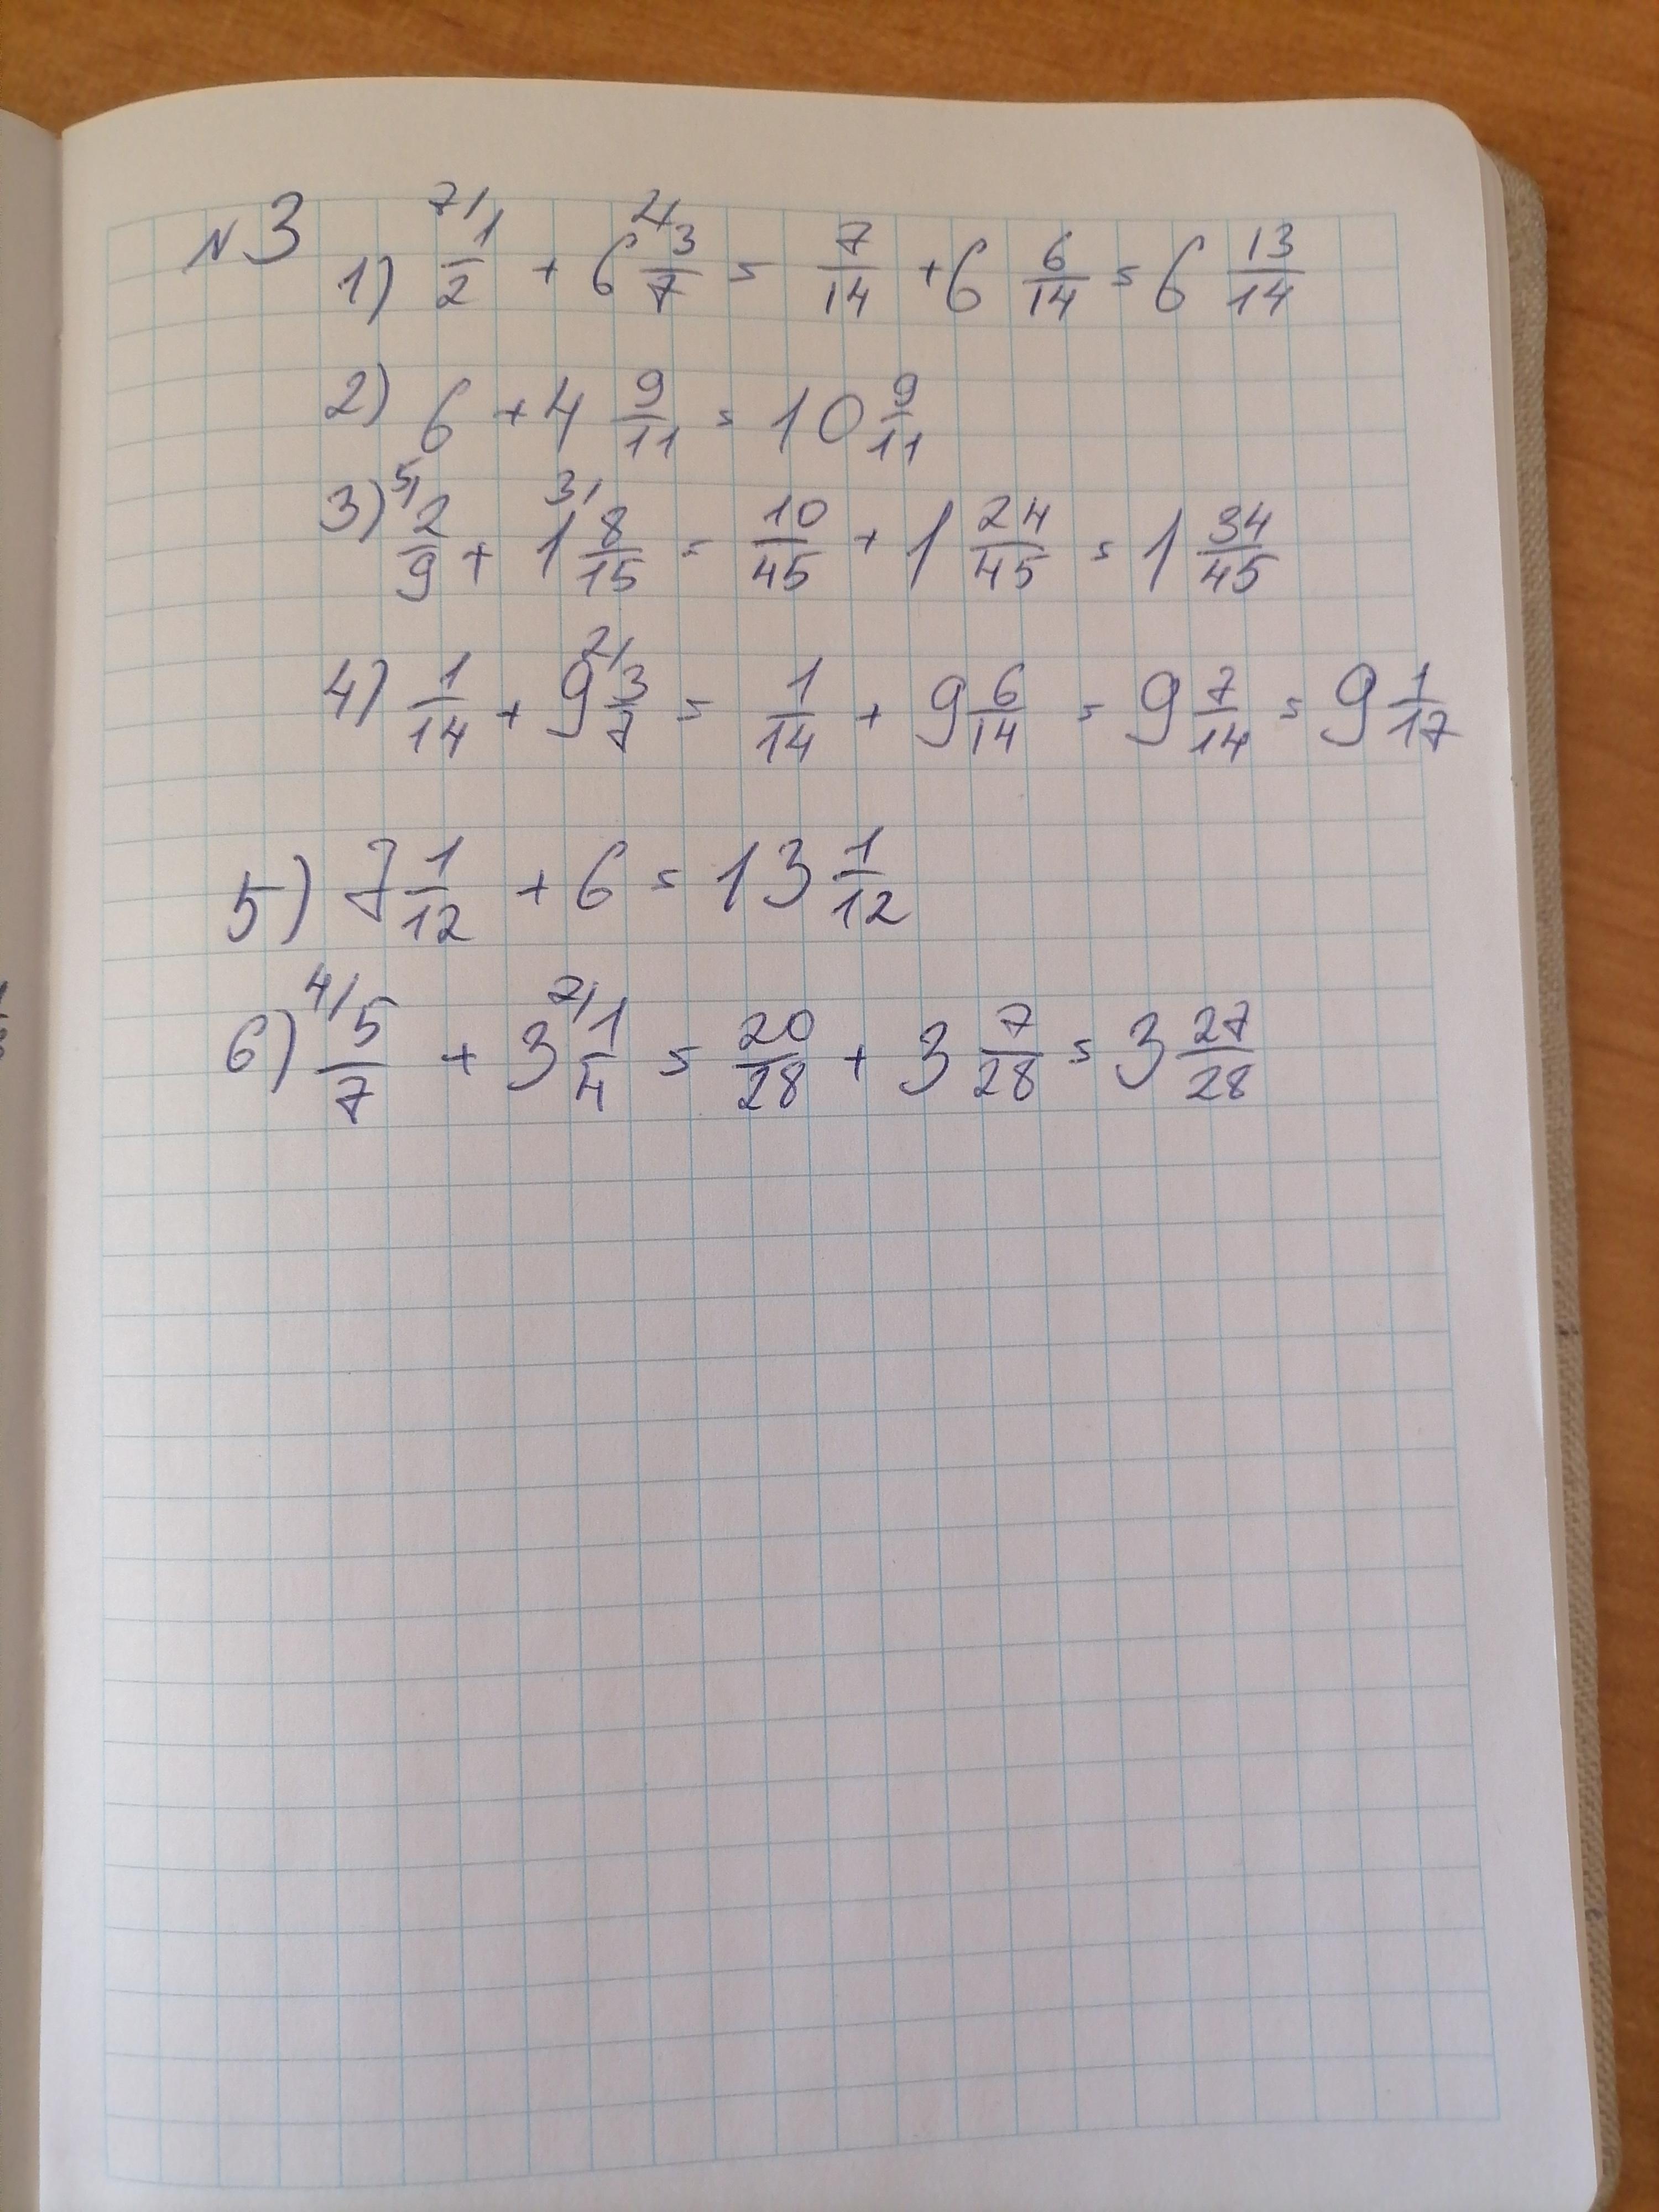 N 3
1) 7/ 1/2 + 6 2/ 3/7 = 7/14 + 6 6/14 = 6 13/14
2) 6 + 4 9/11 = 10 9/11
3) 5/ 2/9 + 1 3/ 8/15 = 10/45 + 1 24/45 = 1 34/45
4) 1/14 + 9 2/ 3/7 = 1/14 + 9 6/14 = 9 7/14 = 9 1/17
5) 7 1/12 + 6 = 13 1/12
6) 4/ 5/7 + 3 7/ 1/4 = 20/28 + 3 7/28 = 3 27/28